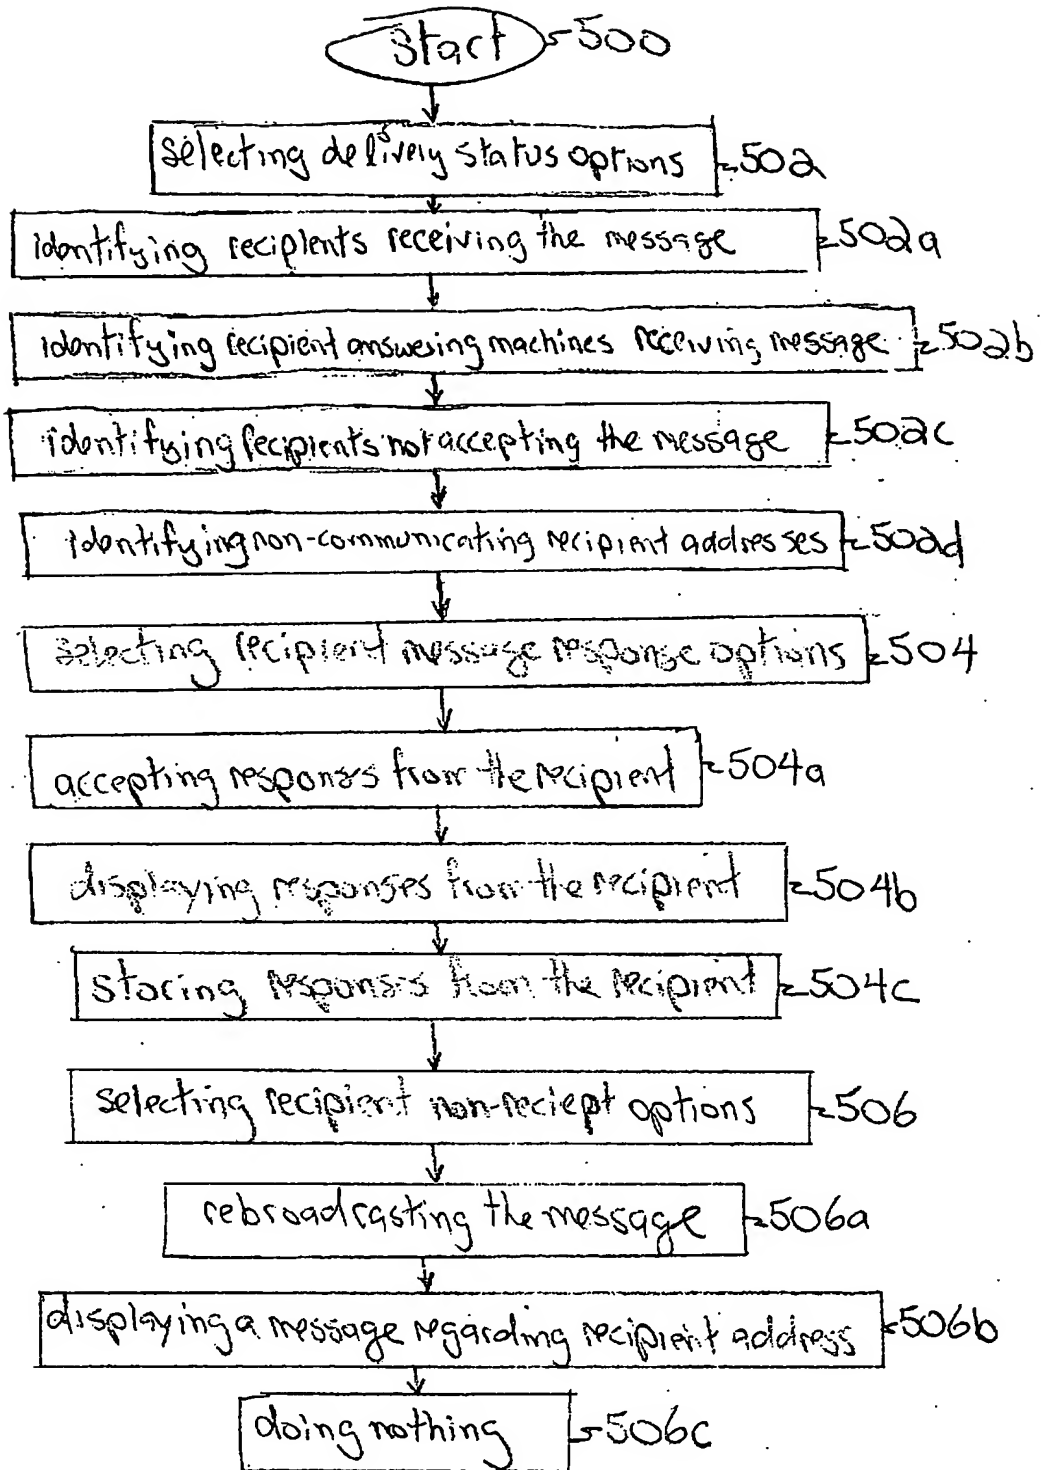 start 500
selecting delivery status options 502
identifying recipients receiving the message 502a
identifying recipient answering machines receiving message 502b
identifying recipients not accepting the message 502c
identifying non-communicating recipient addresses 502d
selecting recipient message response options 504
accepting responses from the recipient 504a
displaying responses from the recipient 504b
storing responses from the recipient 504c
selecting recipient non-reciept options 506
rebroadcasting the message 506a
displaying a message regarding recipient address 506b
doing nothing 506c